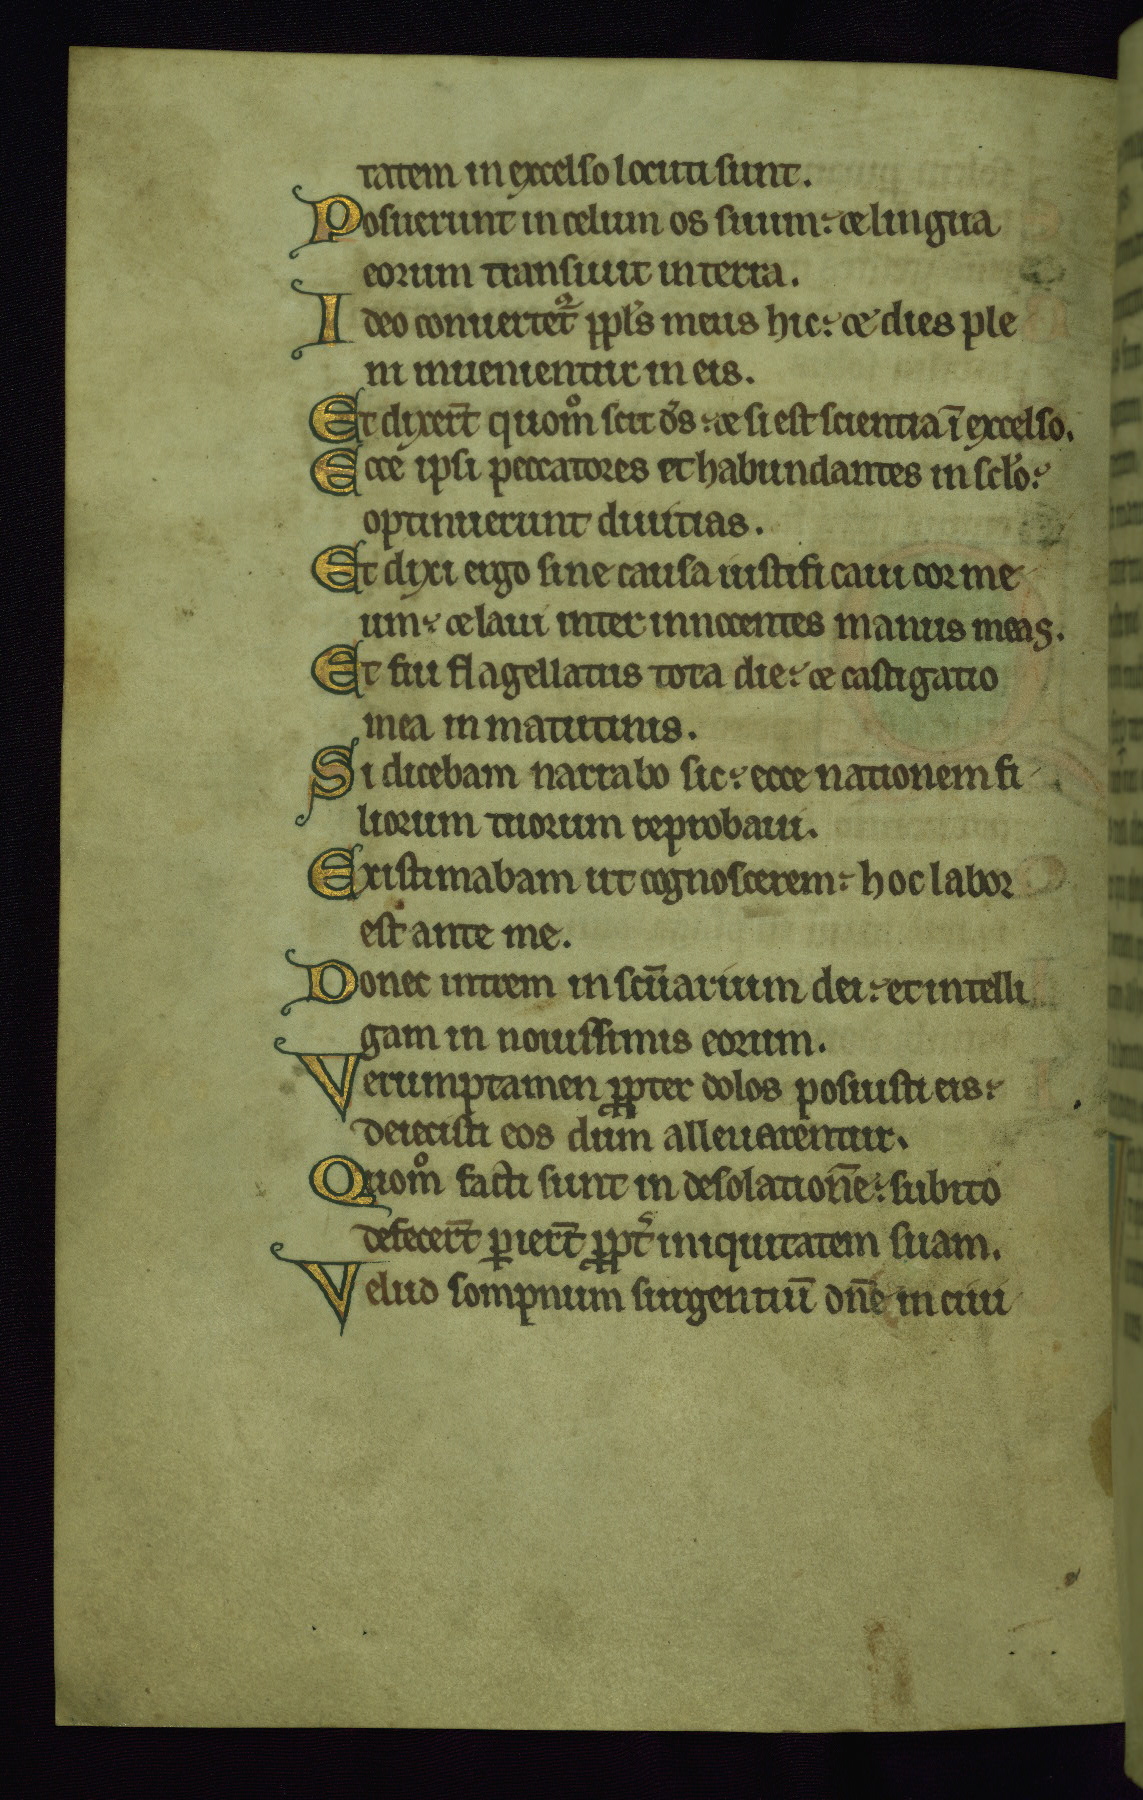 tatem in excelso locuti sunt.
Posuerunt in celum os suum: et lingua
eorum transiuit in terra.
Ideo conuertet᷑ ppl̅s meus hic: et dies ple
ni inuenientur in eis.
Et dixer̅t quom̊ scit ds̅: et si est scientia i̅ excelso.
Ecce ipsi peccatores et habundantes in scl̅o:
optinuerunt diuitias.
Et dixi ergo sine causa iustificaui cor me
um: et laui inter innocentes manus meas.
Et fui flagellatus tota die: et castigatio
mea in matutinis.
Si dicebam narrabo sic: ecce nationem fi
liorum tuorum reprobaui.
Existimabam ut cognoscerem: hoc labor
est ante me.
Donec intrem in scu̅arium dei: et intelli
gam in nouissimis eorum.
Verumptamen ꝓpter dolos posuisti eis:
deiecisti eos dum alleuarentur.
Quom̊ facti sunt in desolatione̅: subito
defecer̅t ꝑier̅t ꝓpt̛ iniquitatem suam.
Velud sompnum surgentiu̅ dn̅e in ciui